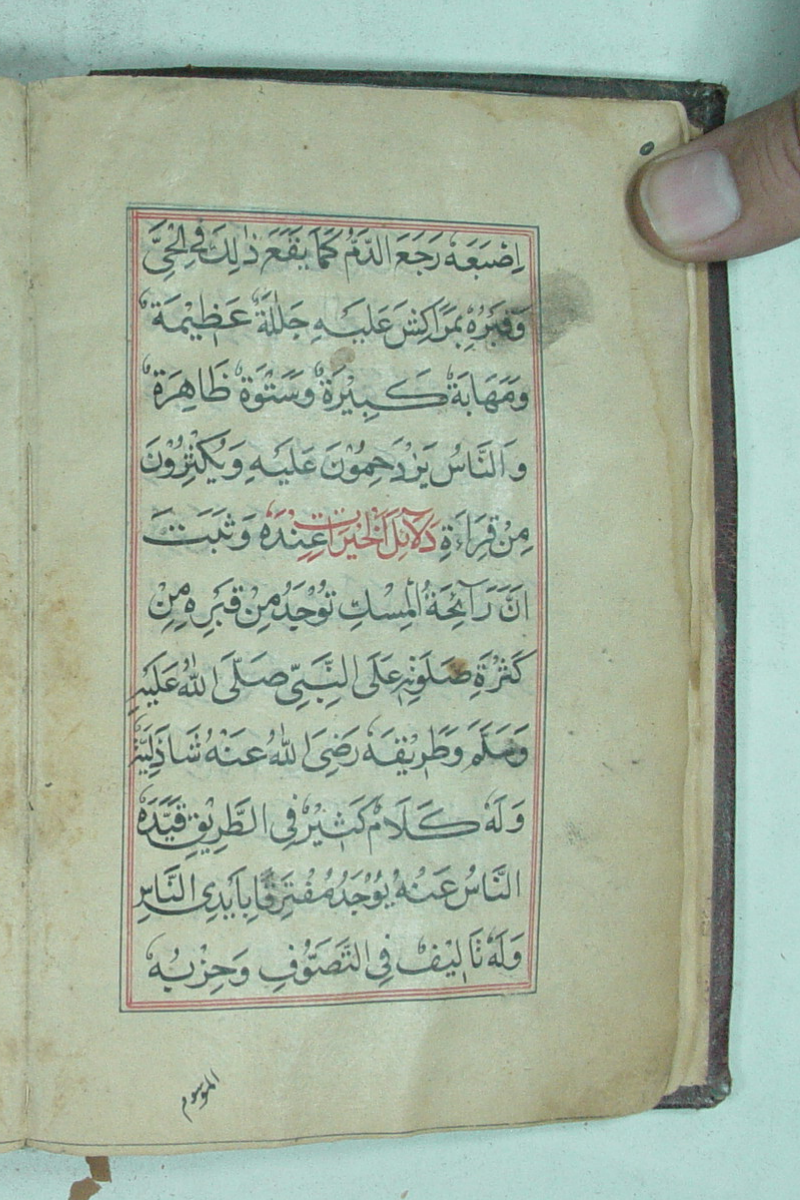 ٥
اِصْبَعَهٗ رَجَعَ الدَّمُ كَمَا يَقَعُ ذٰلِكَ فِي الْحَيِّ
وَقَبْرُهٗ بِمَرَّاكِشَ عَلَيْهِ جَلَالَةٌ عَظِيْمَةٌ
وَمَهَابَةٌ كَبِيْرَةٌ وَسَتْوَةٌ ظَاهِرَةٌ
وَالنَّاسُ يَزْدَحِمُوْنَ عَلَيْهِ وَيُكْثِرُوْنَ
مِنْ قِرَاءَةِ دَلَآئِلَ الْخَيْرَاتِ عِنْدَهٗ وَثَبَتَ
اَنَّ رَآئِحَةَ الْمِسْكِ تُوْجَدُ مِنْ قَبْرِهٖ مِنْ
كَثْرَةِ صَلٰوتِهٖ عَلَى النَّبِيِّ صَلَّى اللهُ عَلَيْهِ
وَسَلَّمَ وَطَرِيْقَهٗ رَضِيَ اللهُ عَنْهُ شَاذَلِيَّةٌ
وَلَهٗ كَلَامٌ كَثِيْرٌ فِي الطَّرِيْقِ قَيَّدَهٗ
النَّاسُ عَنْهُ يُوْجَدُ مُفْتَرِقًا بِاَيْدِي النَّاسِ
وَلَهٗ تَالِيْفٌ فِي التَّصَوُّفِ وَحِزْبُهٗ
الموسوم